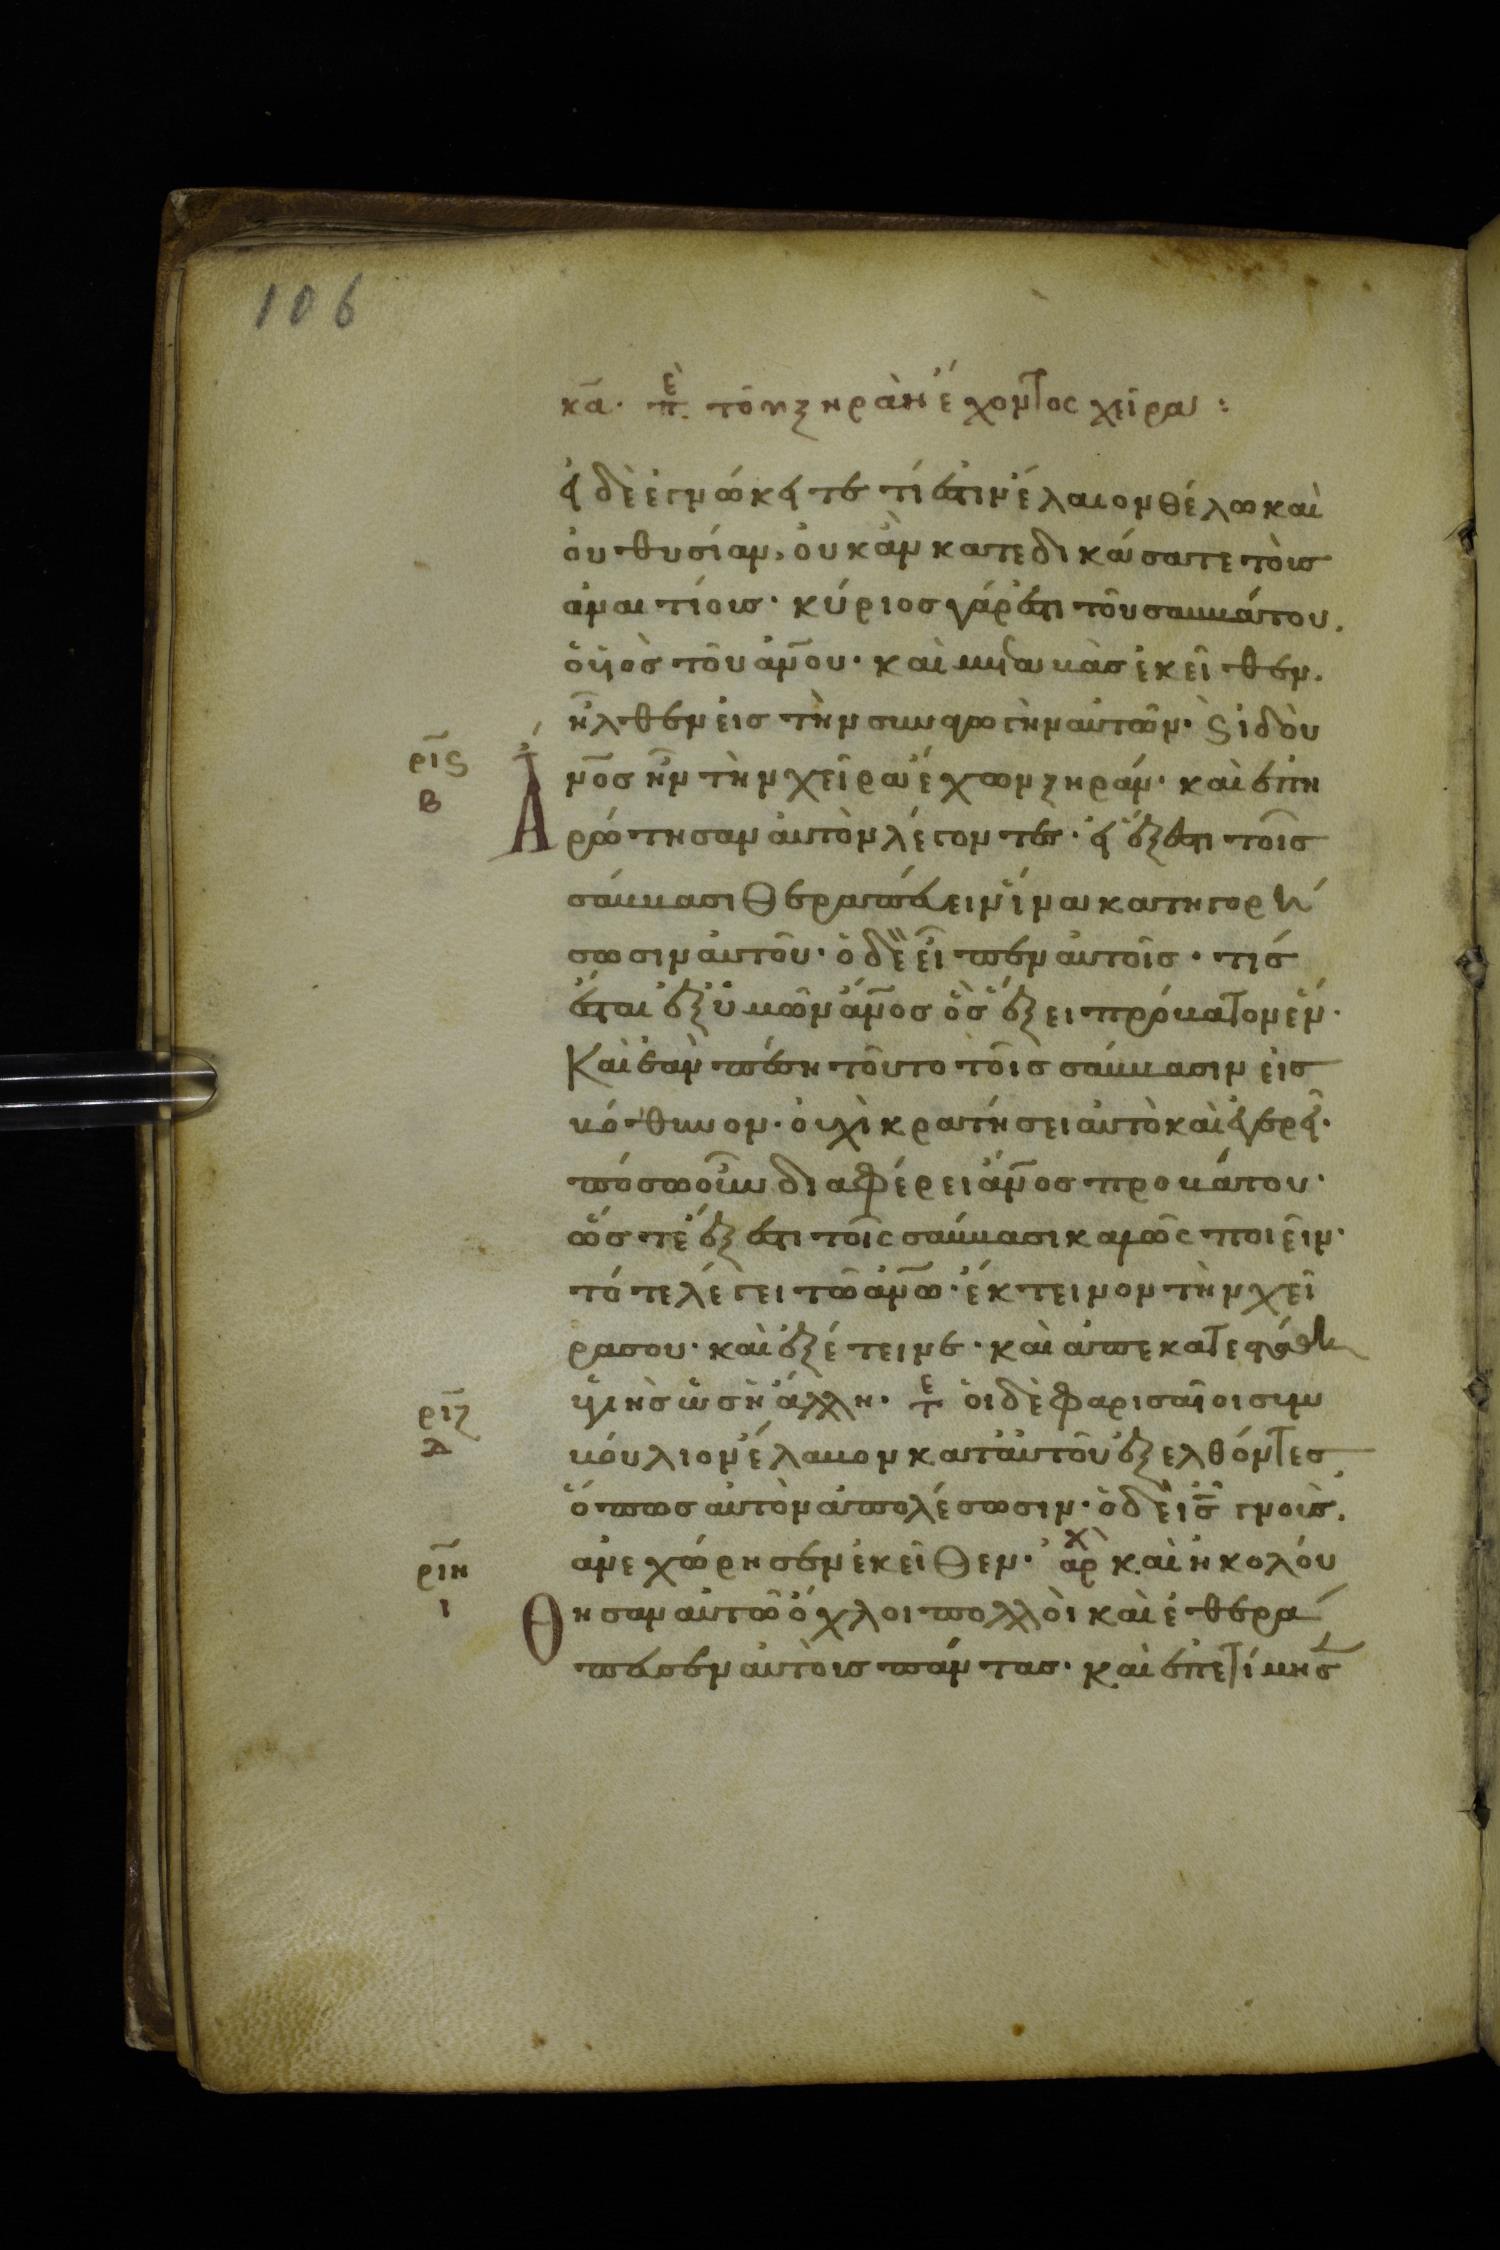 106
κα̅· πε τοῦ ξηρὰν ἔχοντος χεῖρα:
εἰ δὲ ἐγνώκειτε τί ἐστιν ἔλαιον θέλω καὶ
οὐ θυσίαν, οὐκ ἂν κατεδικάσατε τοὺς
ἀναιτίους· κύριος γάρ ἐστι τοῦ σαββάτου.
ὁ υἱὸς τοῦ αν̅ου· καὶ μεταβὰς ἐκεῖθεν.
ἦλθεν εἰς τὴν συναγωγὴν αὐτῶν· ϗ ἰδοὺ
ρις̅ αν̅ος ἦν τὴν χεῖρα ἔχων ξηράν· καὶ ἐπη
β ρώτησαν αὐτὸν λέγοντες· εἰ ἔξεστι τοῖς
σάββασι θεραπεύειν ἵνα κατηγορή
σωσιν αὐτοῦ· ὁ δὲ εἶπεν αὐτοῖς· τίς
ἔσται ἐξ ὑμῶν αν̅ος ὃς ἕξει πρόβατον ἕν·
Καὶ ἐὰν πέσῃ τοῦτο τοῖς σάββασιν εἰς
βόθυνον· οὐχὶ κρατήσει αὐτὸ καὶ ἐγερεῖ·
πόσῳ οὖν διαφέρει αν̅ος προβάτου·
ὥστε ἔξεστι τοῖς σάββασι καλῶς ποιεῖν·
τότε λέγει τῶ αν̅ω· ἔκτεινον τὴν χεῖ
ρα σου· καὶ ἐξέτεινε· καὶ ἀπεκατεστάθη
ριζ̅ ὑγιὴς ὡς ἡ ἄλλη· τε οἱ δὲ φαρισαῖοι συμ
δ βούλιον ἔλαβον κατ' αὐτοῦ ἐξελθόντες
ὅπως αὐτὸν ἀπολέσωσιν· ὁ δὲ ις̅ γνοὺς.
ριη̅ ἀνεχώρησεν ἐκεῖθεν· αρχ καὶ ἠκολού
ι θησαν αὐτῶ ὄχλοι πολλοὶ καὶ ἐθερά
πευσεν αὐτοὺς πάντας· καὶ ἐπετίμησ